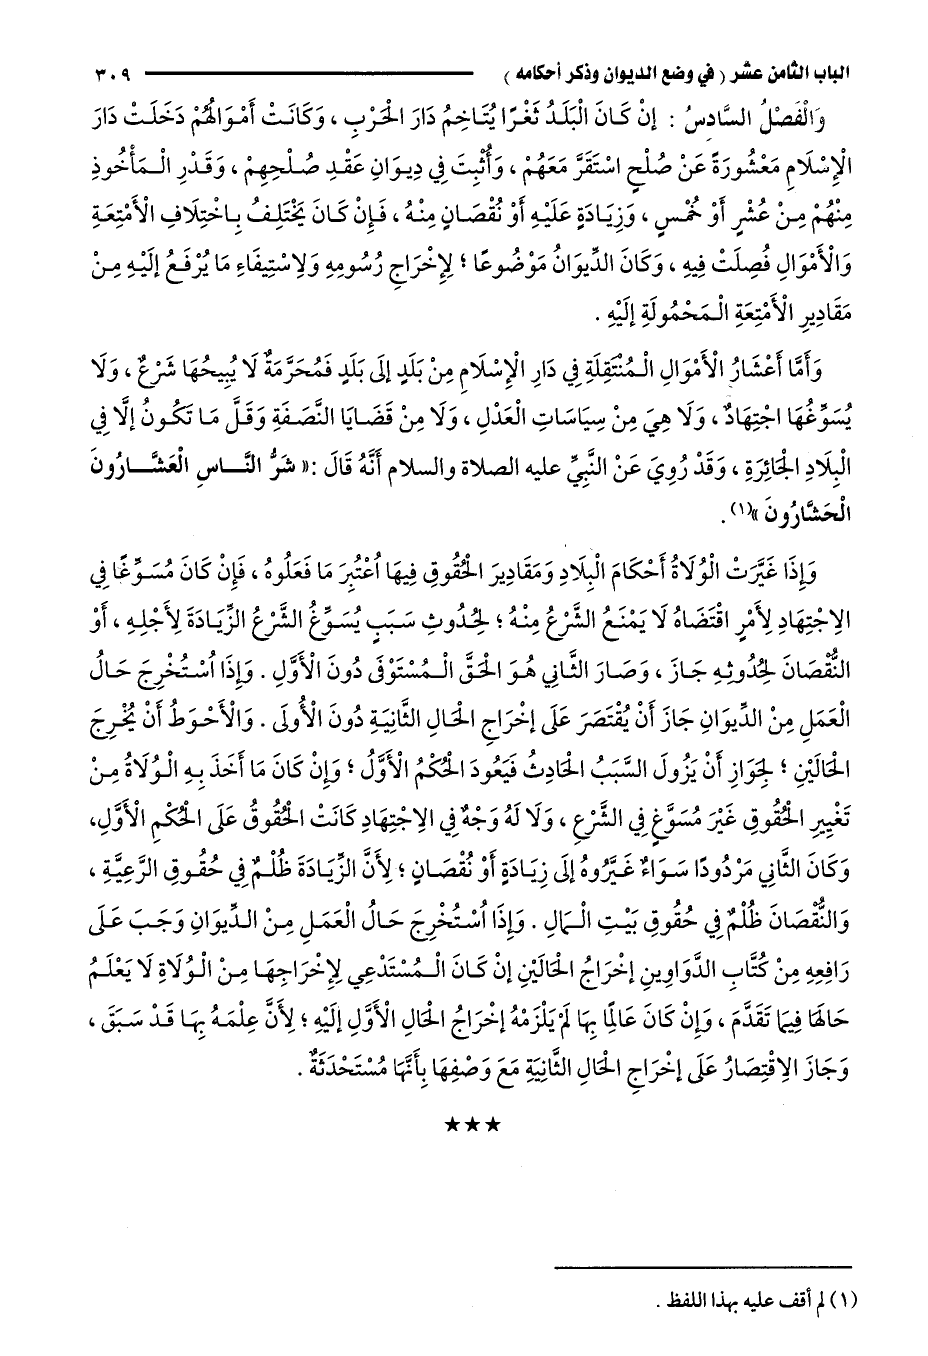 الباب الثامن عشر ( في وضع الديوان وذكر أحكامه ) ٣٠٩
وَالْفَصْلُ السَّادِسُ : إنْ كَانَ الْبَلَدُ ثَغْرًا يُتَاخِمُ دَارَ الْحَرْبِ ، وَكَانَتْ أَمْوَالُهُمْ دَخَلَتْ دَارَ
الْإِسْلَامِ مَعْشُورَةً عَنْ صُلْحٍ اسْتَقَرَّ مَعَهُمْ ، وَأُثْبِتَ فِي دِيوَانِ عَقْدِ صُلْحِهِمْ ، وَقَدْرِ الْمَأْخُوذِ
مِنْهُمْ مِنْ عُشْرٍ أَوْ خُمْسٍ ، وَزِيَادَةٍ عَلَيْهِ أَوْ نُقْصَانٍ مِنْهُ ، فَإِنْ كَانَ يَخْتَلِفُ بِاخْتِلَافِ الْأَمْتِعَةِ
وَالْأَمْوَالِ فُصِلَتْ فِيهِ ، وَكَانَ الدِّيوَانُ مَوْضُوعًا ؛ لِإِخْرَاجِ رُسُومِهِ وَلِاسْتِيفَاءِ مَا يُرْفَعُ إلَيْهِ مِنْ
مَقَادِيرِ الْأَمْتِعَةِ الْمَحْمُولَةِ إلَيْهِ .
وَأَمَّا أَعْشَارُ الْأَمْوَالِ الْمُنْتَقِلَةِ فِي دَارِ الْإِسْلَامِ مِنْ بَلَدٍ إلَى بَلَدٍ فَمُحَرَّمَةٌ لَا يُبِيحُهَا شَرْعٌ ، وَلَا
يُسَوِّغُهَا اجْتِهَادٌ ، وَلَا هِيَ مِنْ سِيَاسَاتِ الْعَدْلِ ، وَلَا مِنْ قَضَايَا النَّصَفَةِ وَقَلَّ مَا تَكُونُ إلَّا فِي
الْبِلَادِ الْجَائِرَةِ ، وَقَدْ رُوِيَ عَنْ النَّبِيِّ عليه الصلاة والسلام أَنَّهُ قَالَ :« شَرُّ النَّاسِ الْعَشَّارُونَ
الْحَشَّارُونَ »(١).
وَإِذَا غَيَّرَتْ الْوُلَاةُ أَحْكَامَ الْبِلَادِ وَمَقَادِيرَ الْحُقُوقِ فِيهَا اُعْتُبِرَ مَا فَعَلُوهُ ، فَإِنْ كَانَ مُسَوَّغًا فِي
الِاجْتِهَادِ لِأَمْرٍ اقْتَضَاهُ لَا يَمْنَعُ الشَّرْعُ مِنْهُ ؛ لِحُدُوثِ سَبَبٍ يُسَوِّغُ الشَّرْعُ الزِّيَادَةَ لِأَجْلِهِ ، أَوْ
النُّقْصَانَ لِحُدُوثِهِ جَازَ ، وَصَارَ الثَّانِي هُوَ الْحَقَّ الْمُسْتَوْفَى دُونَ الْأَوَّلِ . وَإِذَا اُسْتُخْرِجَ حَالُ
الْعَمَلِ مِنْ الدِّيوَانِ جَازَ أَنْ يُقْتَصَرَ عَلَى إخْرَاجِ الْحَالِ الثَّانِيَةِ دُونَ الْأُولَى . وَالْأَحْوَطُ أَنْ يُخْرِجَ
الْحَالَيْنِ ؛ لِجَوَازِ أَنْ يَزُولَ السَّبَبُ الْحَادِثُ فَيَعُودَ الْحُكْمُ الْأَوَّلُ ؛ وَإِنْ كَانَ مَا أَخَذَ بِهِ الْوُلَاةُ مِنْ
تَغْيِيرِ الْحُقُوقِ غَيْرَ مُسَوَّغٍ فِي الشَّرْعِ ، وَلَا لَهُ وَجْهٌ فِي الِاجْتِهَادِ كَانَتْ الْحُقُوقُ عَلَى الْحُكْمِ الْأَوَّلِ،
وَكَانَ الثَّانِي مَرْدُودًا سَوَاءٌ غَيَّرُوهُ إلَى زِيَادَةٍ أَوْ نُقْصَانٍ ؛ لِأَنَّ الزِّيَادَةَ ظُلْمٌ فِي حُقُوقِ الرَّعِيَّةِ ،
وَالنُّقْصَانَ ظُلْمٌ فِي حُقُوقِ بَيْتِ الْمَالِ . وَإِذَا اُسْتُخْرِجَ حَالُ الْعَمَلِ مِنْ الدِّيوَانِ وَجَبَ عَلَى
رَافِعِهِ مِنْ كُتَّابِ الدَّوَاوِينِ إخْرَاجُ الْحَالَيْنِ إنْ كَانَ الْمُسْتَدْعِي لِإِخْرَاجِهَا مِنْ الْوُلَاةِ لَا يَعْلَمُ
حَالَهَا فِيمَا تَقَدَّمَ ، وَإِنْ كَانَ عَالِمًا بِهَا لَمْ يَلْزَمْهُ إخْرَاجُ الْحَالِ الْأَوَّلِ إلَيْهِ ؛ لِأَنَّ عِلْمَهُ بِهَا قَدْ سَبَقَ ،
وَجَازَ الِاقْتِصَارُ عَلَى إخْرَاجِ الْحَالِ الثَّانِيَةِ مَعَ وَصْفِهَا بِأَنَّهَا مُسْتَحْدَثَةٌ .
★★★
(١) لم أقف عليه بهذا اللفظ .